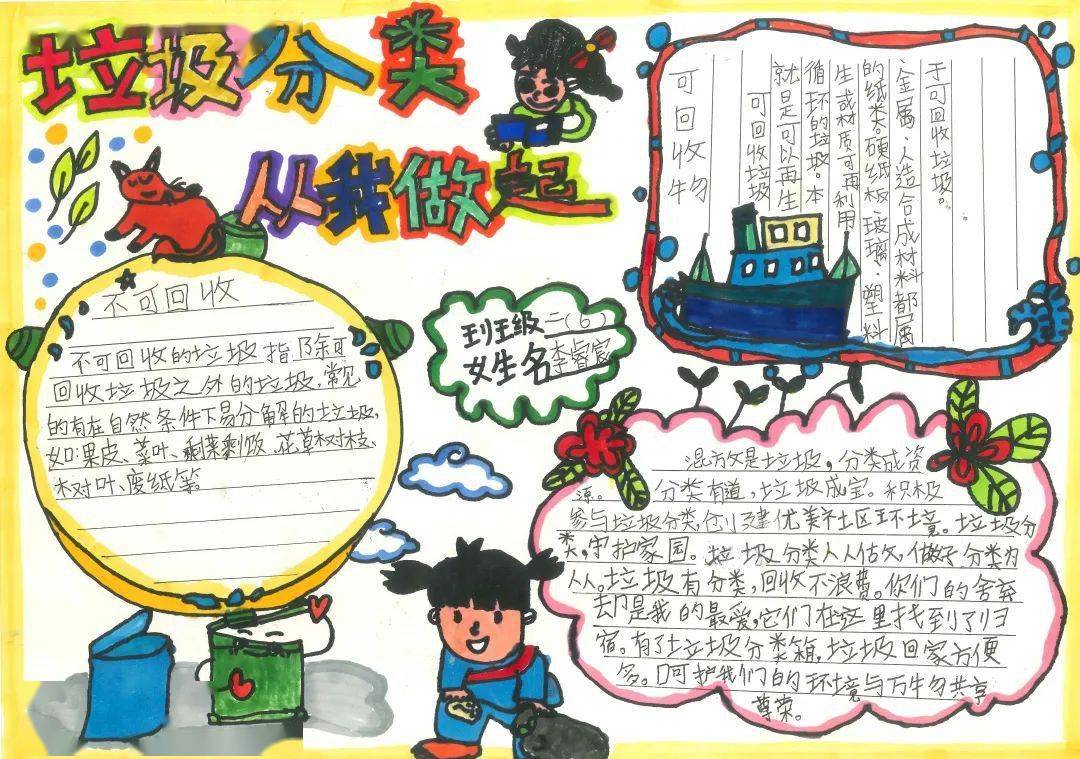 垃圾分类
从我做起
不可回收
不可回收的垃圾指除可
回收垃圾之外的垃圾,常见
的有在自然条件下易分解的垃圾,
如:果皮、菜叶、剩菜剩饭、花草树枝、
树叶、废纸等。
班级二(6)
姓名李睿宸
可回收物
可回收垃圾
就是可以再生
循环的垃圾。本
生或材质可再利用
的纸类。硬纸板、玻璃、塑料
、金属、人造合成材料都属
于可回收垃圾。
混放是垃圾,分类成资
源。 分类有道,垃圾成宝。积极
参与垃圾分类,创建优美社区环境。垃圾分
类,守护家园。垃圾分类人人做,做好分类为
人人。垃圾有分类,回收不浪费。你们的舍弃
却是我的最爱,它们在这里找到了归
宿。有了垃圾分类箱,垃圾回家方便
多。呵护我们的环境与万物共享
尊荣。